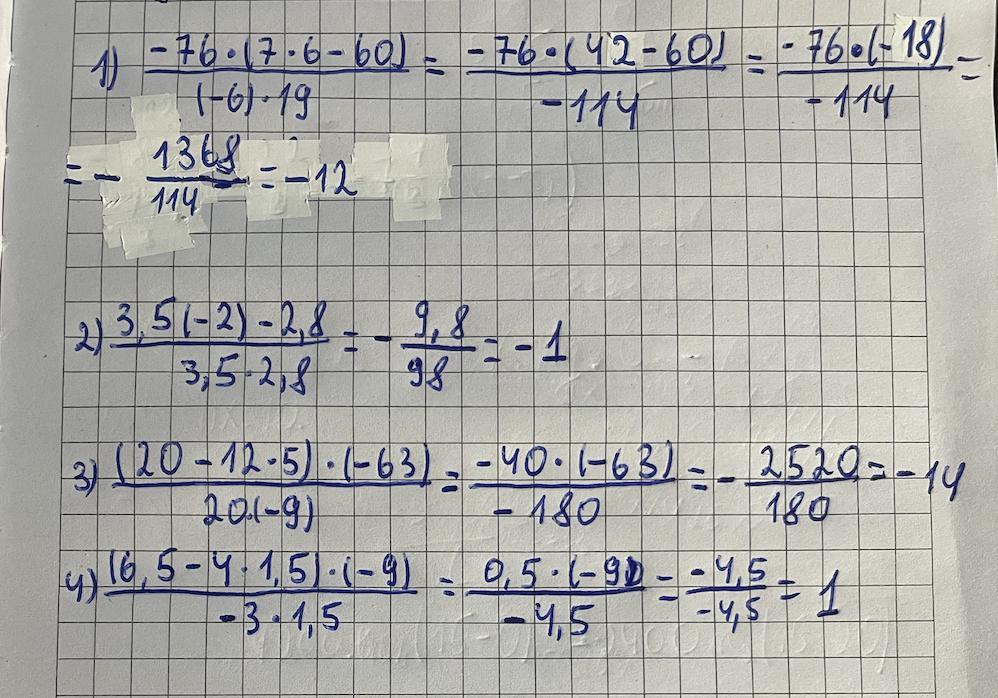 1) (-76·(7·6-60))/((-6)·19) = (-76·(42-60))/(-114) = (-76·(-18))/(-114) =
= - 1368/114 = -12
2) (3,5(-2)-2,8)/(3,5·2,8) = - 9,8/98 = -1
3) ((20-12·5)·(-63))/(20·(-9)) = (-40·(-63))/(-180) = - 2520/180 = -14
4) ((6,5-4·1,5)·(-9))/(-3·1,5) = (0,5·(-9))/(-4,5) = (-4,5)/(-4,5) = 1